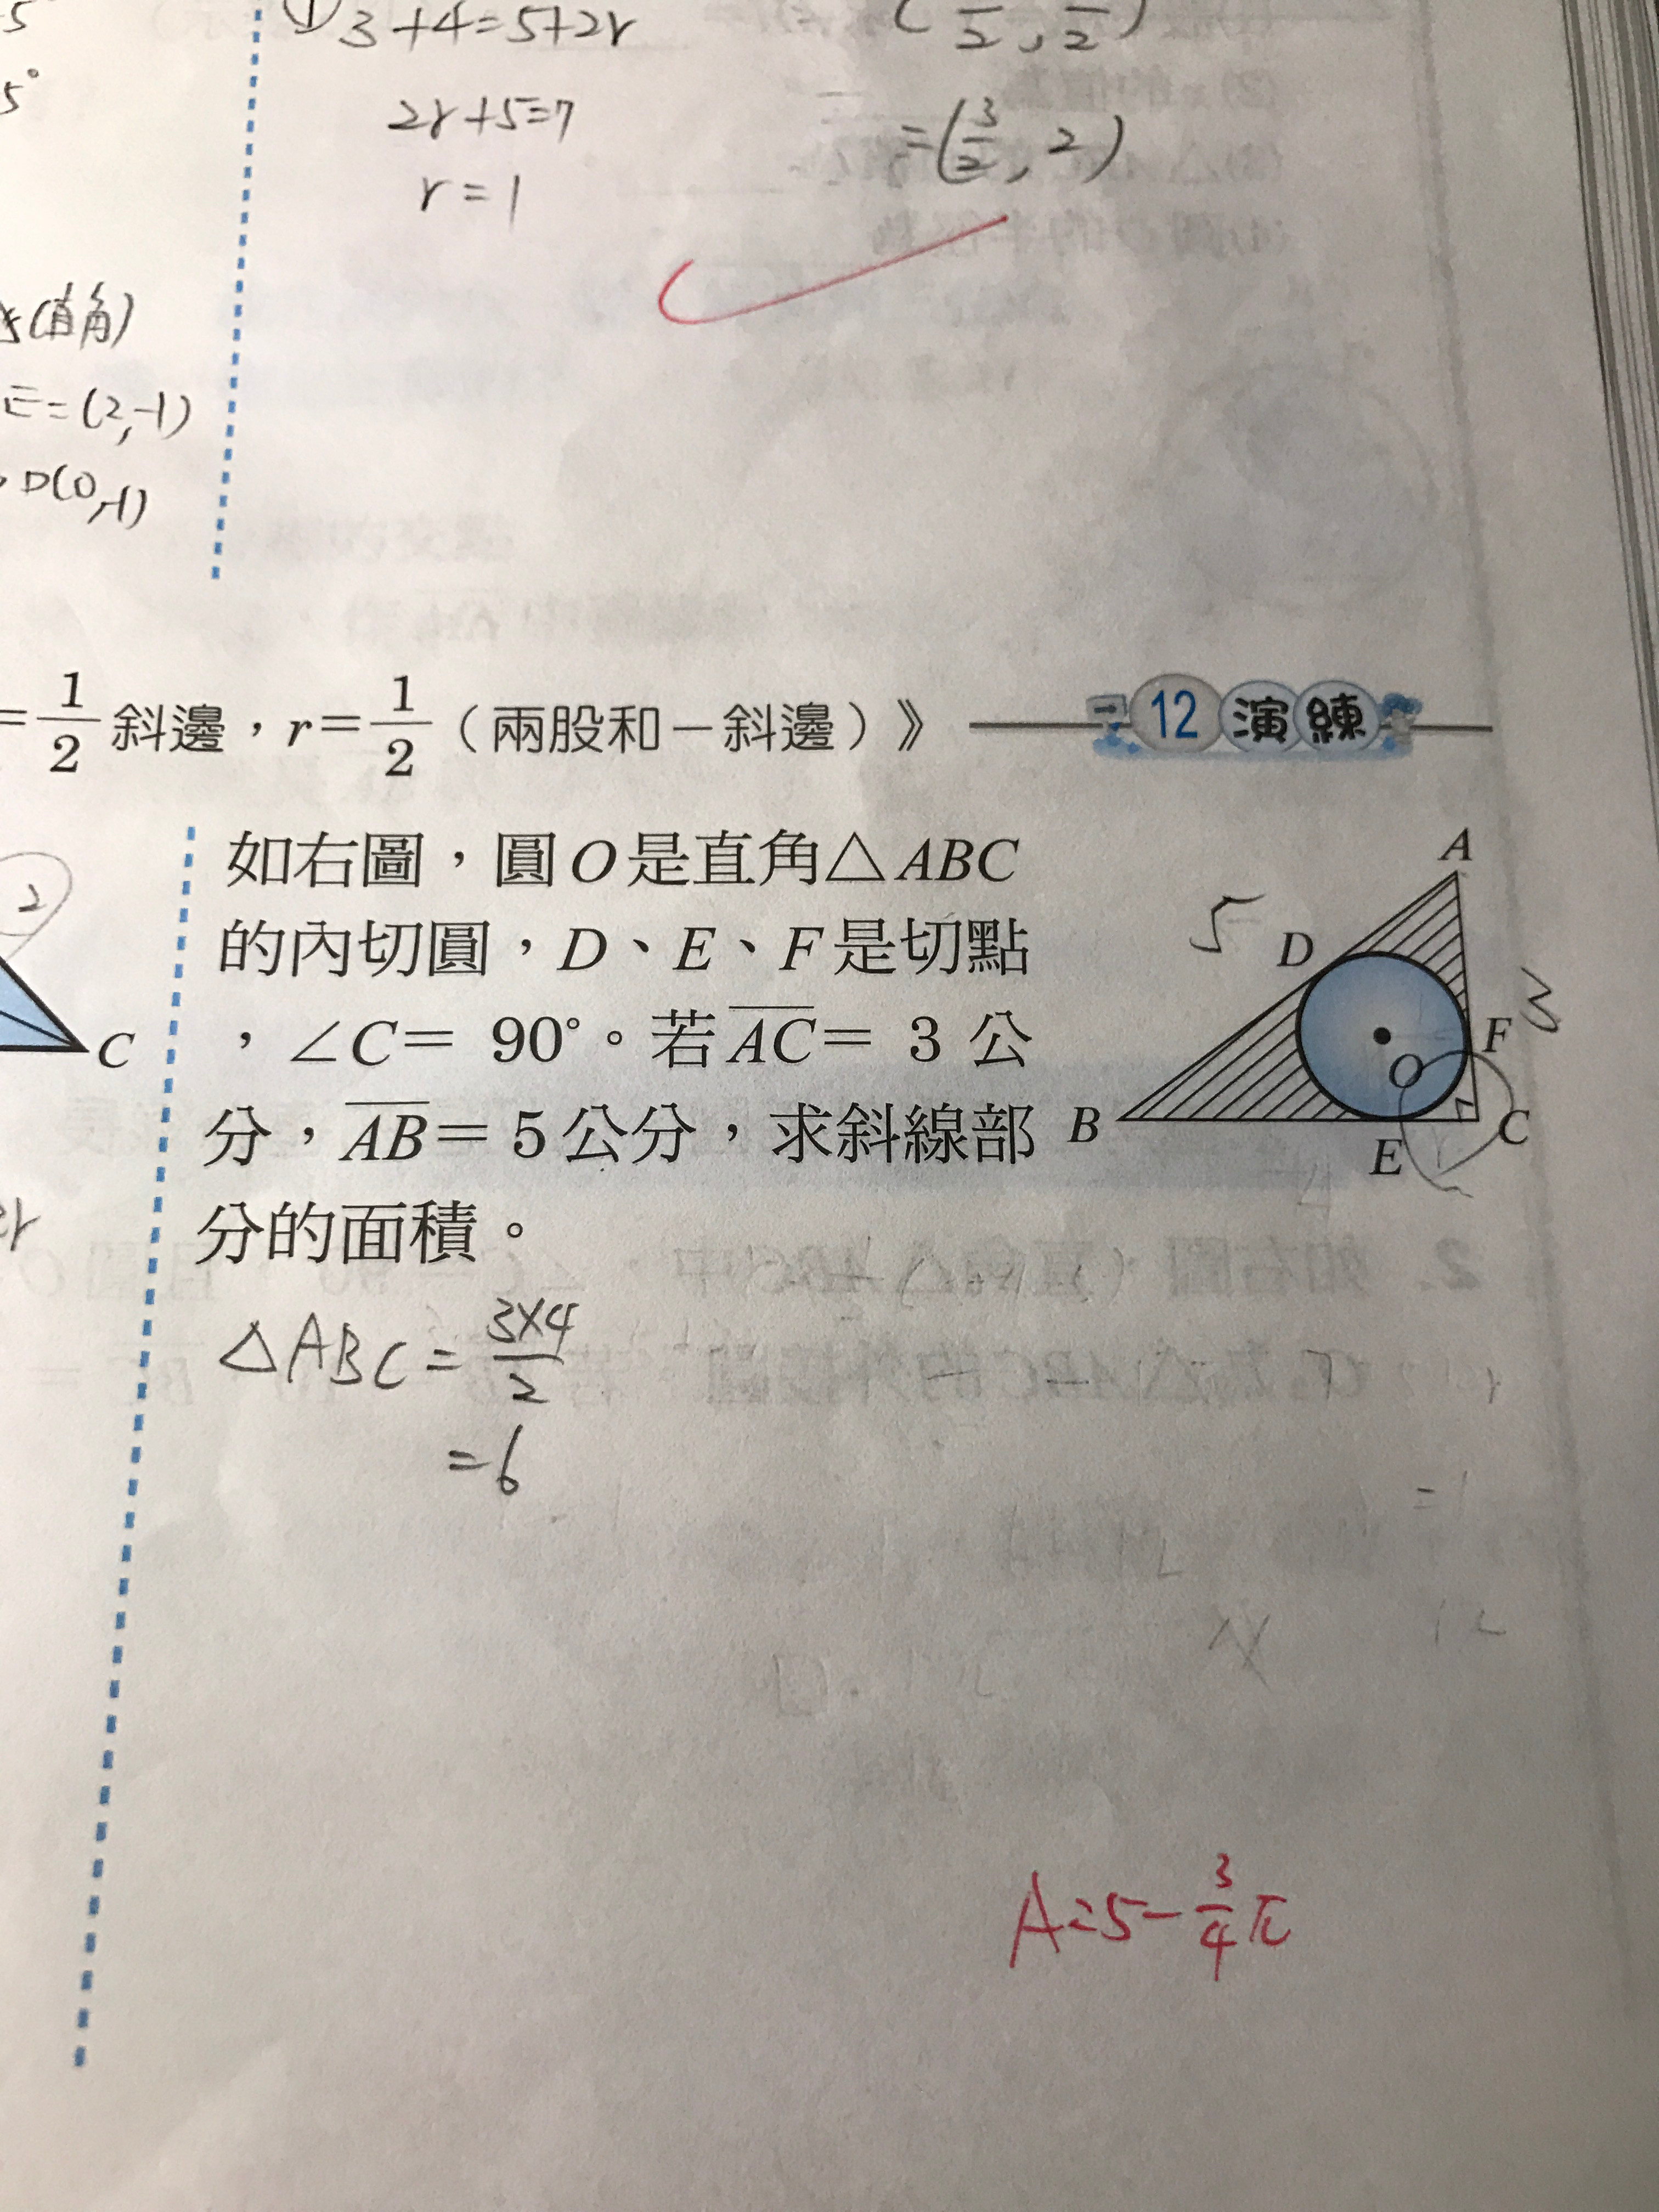 5
5°
①3+4=5+2r
2r+5=7
r=1
=(3/2, 2)
(直角)
E=(2,-1)
D(0,-1)
=1/2 斜邊，r=1/2（兩股和－斜邊）》
12 演練
2
C
如右圖，圓O是直角△ABC
的內切圓，D、E、F是切點
，∠C= 90°。若AC= 3 公
分，AB=5公分，求斜線部
分的面積。
A
5
D
F
3
O
B
E
C
△ABC=3×4/2
=6
A=5-3/4π